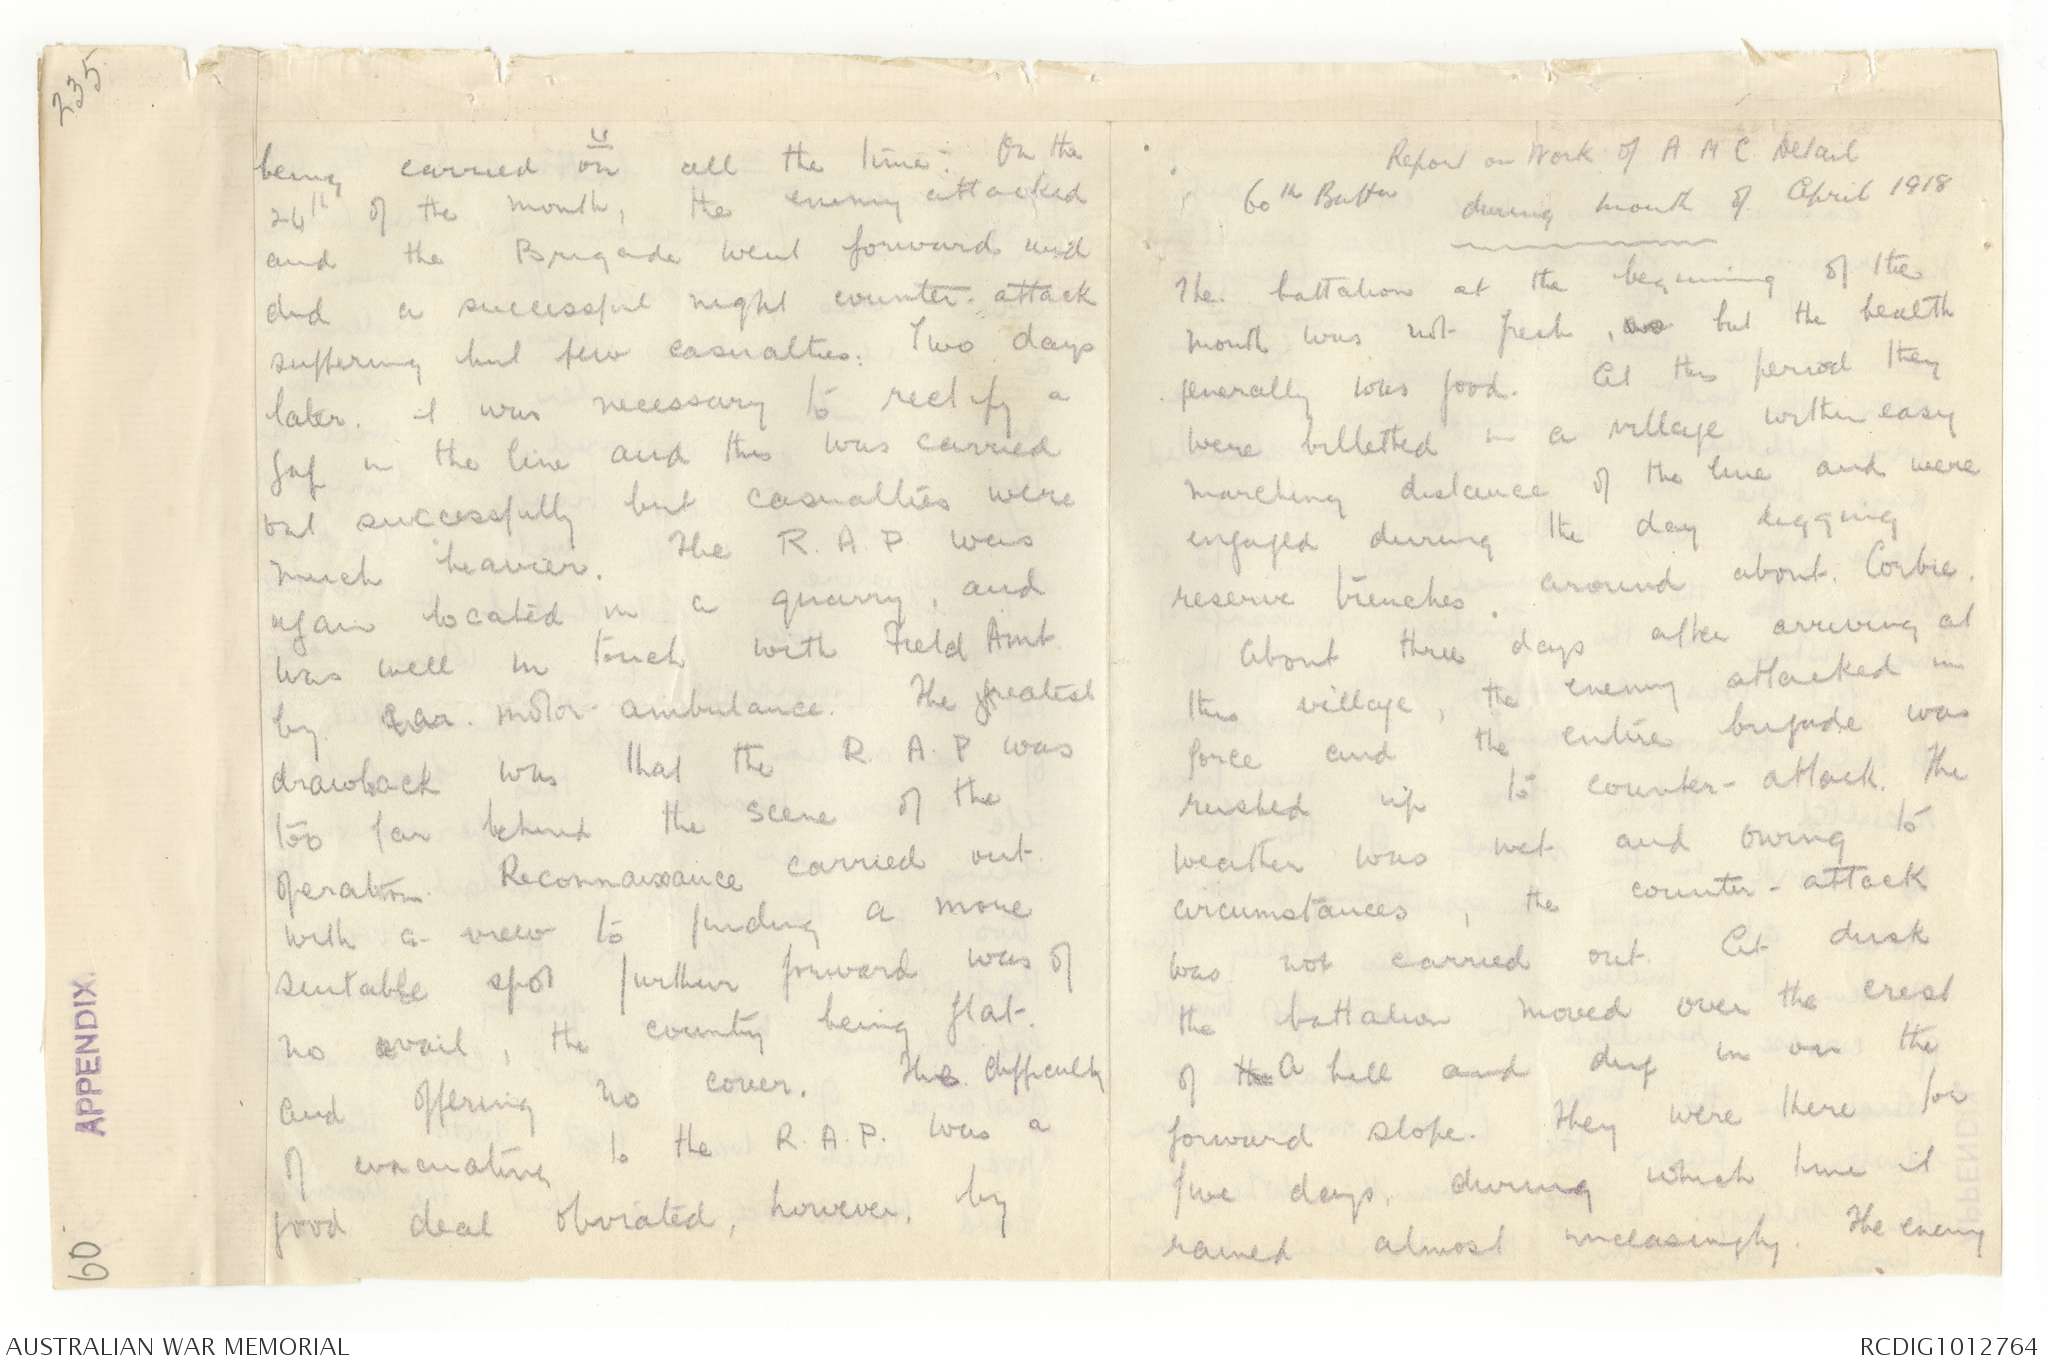 235
u
being carried on all the time. On the
24th of the month, the enemy attacked
and the Brigade went forward and
did a successful night counter-attack
suffering but few casualties. Two days
later. it was necessary to rectify a
gap in the line and this was carried
out successfully but casualties were
much heavier. The R.A.P. was
again located in a quarry, and
was well in touch with Field Amb.
by car. motor ambulance. The greatest
drawback was that the R.A.P was
too far behind the scene of the
operation. Reconnaissance carried out
with a view to finding a more
suitable spot further forward was of
no avail, the county being flat.
and offering no cover. The difficulty
of evacuating to the R.A.P. was a
good deal obviated, however, by
APPENDIX.
60
Report on Work of A M C Detail
60th Battn during month of April 1918
The battalion at the beginning of the
month was not fresh, but the health
generally was good. At this period they
were billetted in a village within easy
marching distance of the line and were
engaged during the day digging
reserve trenches, around about Corbie.
About three days after arriving at
this village, the enemy attacked in
force and the entire brigade was
rushed up to counter-attack. The
weather was wet and owing to
circumstances, the counter-attack
was not carried out. At dusk
the battalion moved over the crest
of the A hill and dug in on the
forward slope. They were there for
five days, during which time it
rained almost unceasingly. The enemy
AUSTRALIAN WAR MEMORIAL
RCDIG1012764